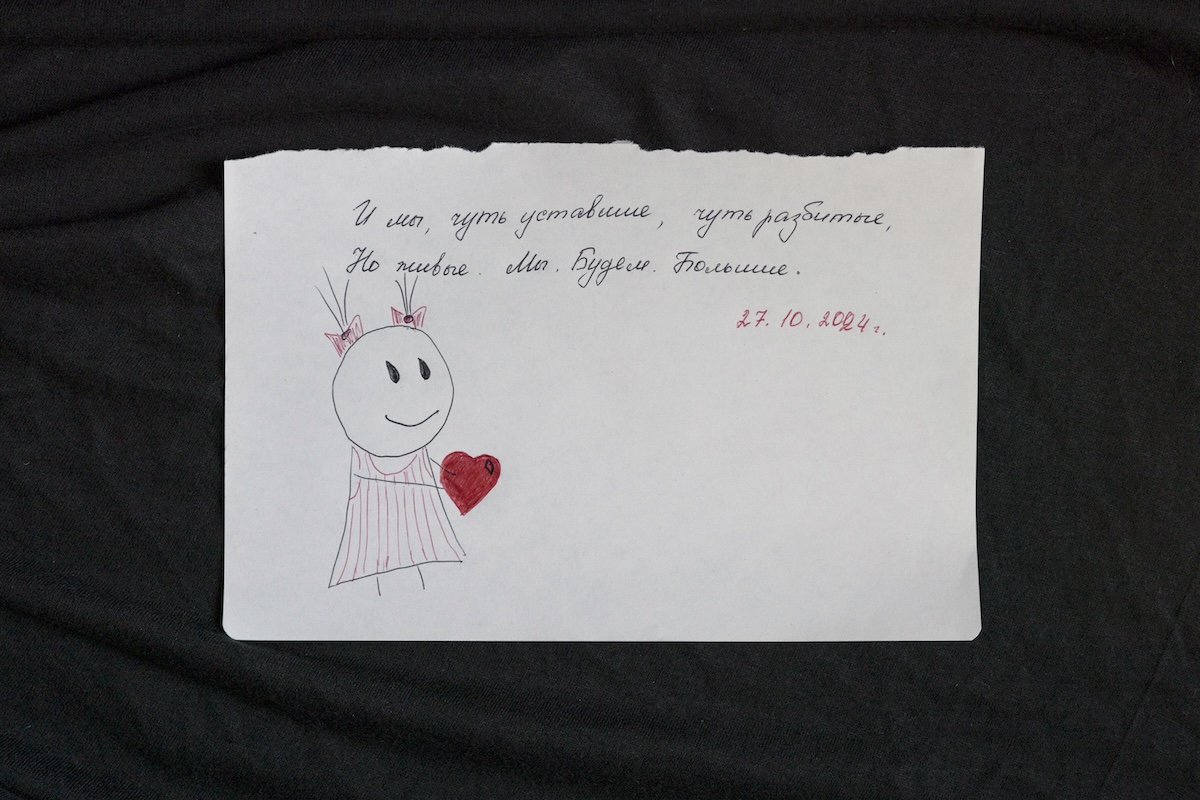 И мы, чуть уставшие, чуть разбитые,
Но живые. Мы. Будем. Больше.
27.10.2024 г.